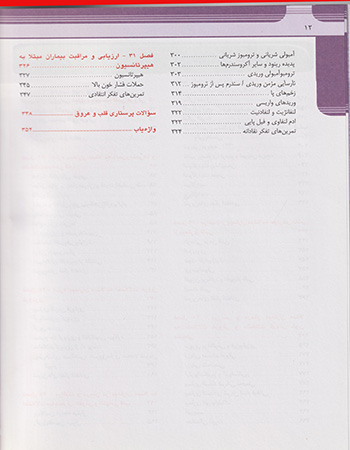 ۱۲
آمبولی شریانی و ترومبوز شریانی ............ ۳۰۰
پدیده رینود و سایر آکروسندرم‌ها ............ ۳۰۲
ترومبوآمبولی وریدی ............ ۳۰۳
نارسایی مزمن وریدی / سندرم پس از ترومبوز ... ۳۱۲
زخم‌های پا ............ ۳۱۴
وریدهای واریسی ............ ۳۱۹
لنفانژیت و لنفادنیت ............ ۳۲۲
ادم لنفاوی و فیل پایی ............ ۳۲۳
تمرین‌های تفکر نقادانه ............ ۳۲۴
فصل ۳۱ - ارزیابی و مراقبت بیماران مبتلا به
هیپرتانسیون ............ ۳۲۶
هیپرتانسیون ............ ۳۲۷
حملات فشار خون بالا ............ ۳۴۵
تمرین‌های تفکر انتقادی ............ ۳۴۷
سؤالات پرستاری قلب و عروق ............ ۳۴۸
واژه‌یاب ............ ۳۵۳